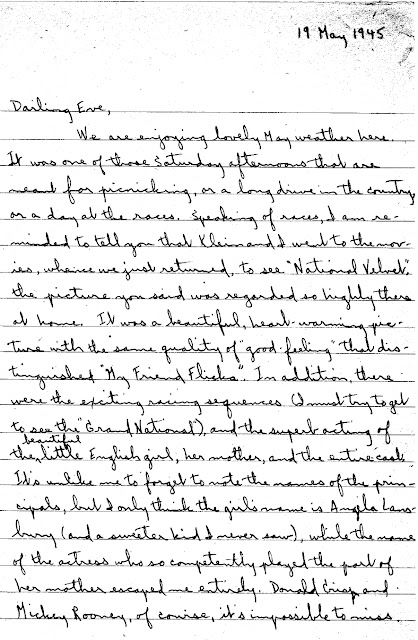 19 May 1945
Darling Eve,
We are enjoying lovely May weather here.
It was one of those Saturday afternoons that are
meant for picnicking, or a long drive in the country,
or a day at the races. Speaking of races, I am re-
minded to tell you that Klein and I went to the mov-
ies, whence we just returned, to see "National Velvet",
the picture you said was regarded so highly there
at home. It was a beautiful, heart-warming pic-
ture with the same quality of "good feeling" that dis-
tinguished "My Friend Flicka". In addition, there
were the exciting racing sequences (I must try to get
to see the "Grand National"), and the superb acting of
beautiful
the little English girl, her mother, and the entire cast.
It's unlike me to forget to note the names of the prin-
cipals, but I only think the girl's name is Angela Lans-
bury (and a sweeter kid I never saw), while the name
of the actress who so competently played the part of
her mother escaped me entirely. Donald Crisp and
Mickey Rooney, of course, it's impossible to miss.